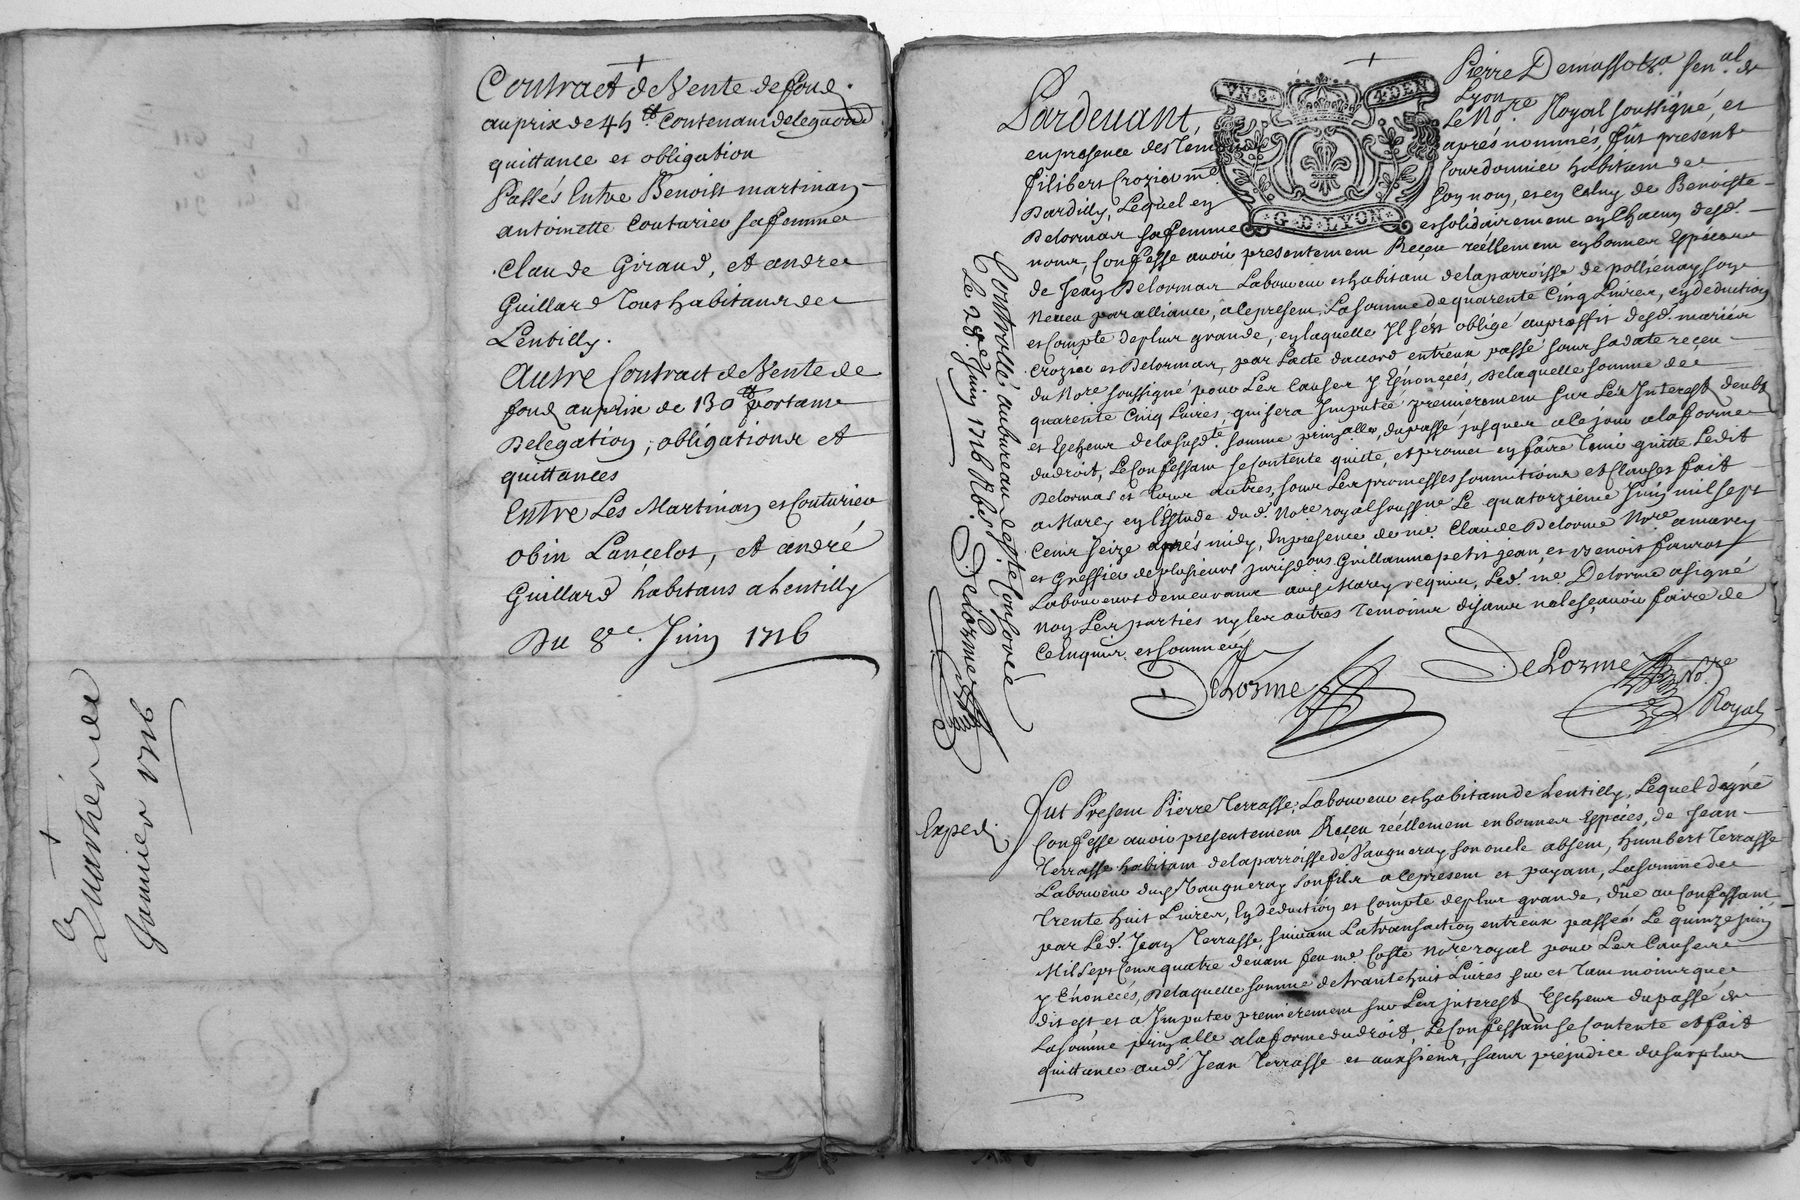 Contract de Vente de fond
au prix de 45 tt contenant delegaon
quittance et obligation
Passés Entre Benoist martinan
antoinette Couturier sa femme
Claude Giraud, et andre
Guillard Tous habitans de
Lentilly.
Autre Contract de Vente de
fond au prix de 130 tt portant
Delegation, obligations et
quittances
Entre Les Martinan et Couturier
obin Lancelot, et andré
Guillard habitans a Lentilly
Du 8e. Juin 1716
Janvier 1716
Pierre Demasso
Lyon
VN.S 4.DEN
G.D.LYON
Pardevant Le Nore. Royal soussigné, et
en presence des Témoins aprés nommés, fût present
filibert Crozier me. Courdonnier habitant de
Dardilly, Lequel en son nom, et en Celuy de Benoiste
Delormas sa femme et solidairement en Chacun desd.
noms, Confesse avoir presentement Reçeu réellement en bonnes Espéces
de Jean Delormas Laboureur et habitant de la parroisse de pollienay son
Neveu par alliance, a le present, La somme de quarente Cinq Livres, en deduction
et Compte de plus grande, en laquelle Il s'est obligé au proffit desd. mariés
Crozier et Delormas, par L'acte d'accord entr'eux passé sous sa date receu
du Nore. soussigné pour Les Causes y Enoncées, De laquelle somme de
quarente Cinq Livres qui sera Imputée premierement sur Les Interest deubs
et Escheus de la susdte. somme prinzalle, du passé jusques a le jour a la forme
du droit, Le Confessant se Contente quitte, et promet en faire Tenir quitte Ledit
Delormas et Tous autres, sous Les promesses soumitions et Clauses fait
a Marcy en l'Estude dud. Nore. royal soussigné Le quatorzieme Juin mil sept
Cens seize aprés midy, En presence de me. Claude Delorme Nore. a marcy
et Greffier de plusieurs jurisdons Guillaume petit jean, et Benoist
Laboureurs demeurans aud. Marcy requis, Led. me. Delorme a signé
non Les parties ny les autres Temoins disans ne le sçavoir faire de
Ce Enquis et sommés
DeLorme
DeLorme Nore. Royal
Controllé au bureau de ste Consorce
Le 28e. Juin 1716
Delorme
Exped.
fut Present Pierre Terrasse, Laboureur et habitant de Lentilly, Lequel de gré
Confesse avoir presentement Reçeu réellement en bonnes Espéces, de Jean
Terrasse habitant de la parroisse de Vaugneray son oncle absent, humbert Terrasse
Laboureur dud. Vaugneray son fils a le present et payant, La somme de
Trente huit Livres, En déduction et Compte de plus grande, düe au Confessant
par Led. Jean Terrasse, suivant La transaction entr'eux passée Le quinze juin
Mil Sept Cens quatre devant feu me. Coste Nore royal pour Les Causes
y Enoncés, De laquelle somme de trante huit Livres sur et Tant moins que
dit est et a Imputer premierement sur Les interest Escheus du passé de
La somme prinzalle a la forme du droit, Le Confessant se Contente et fait
quittance aud. Jean Terrasse et aux siens, sans préjudice du surplus